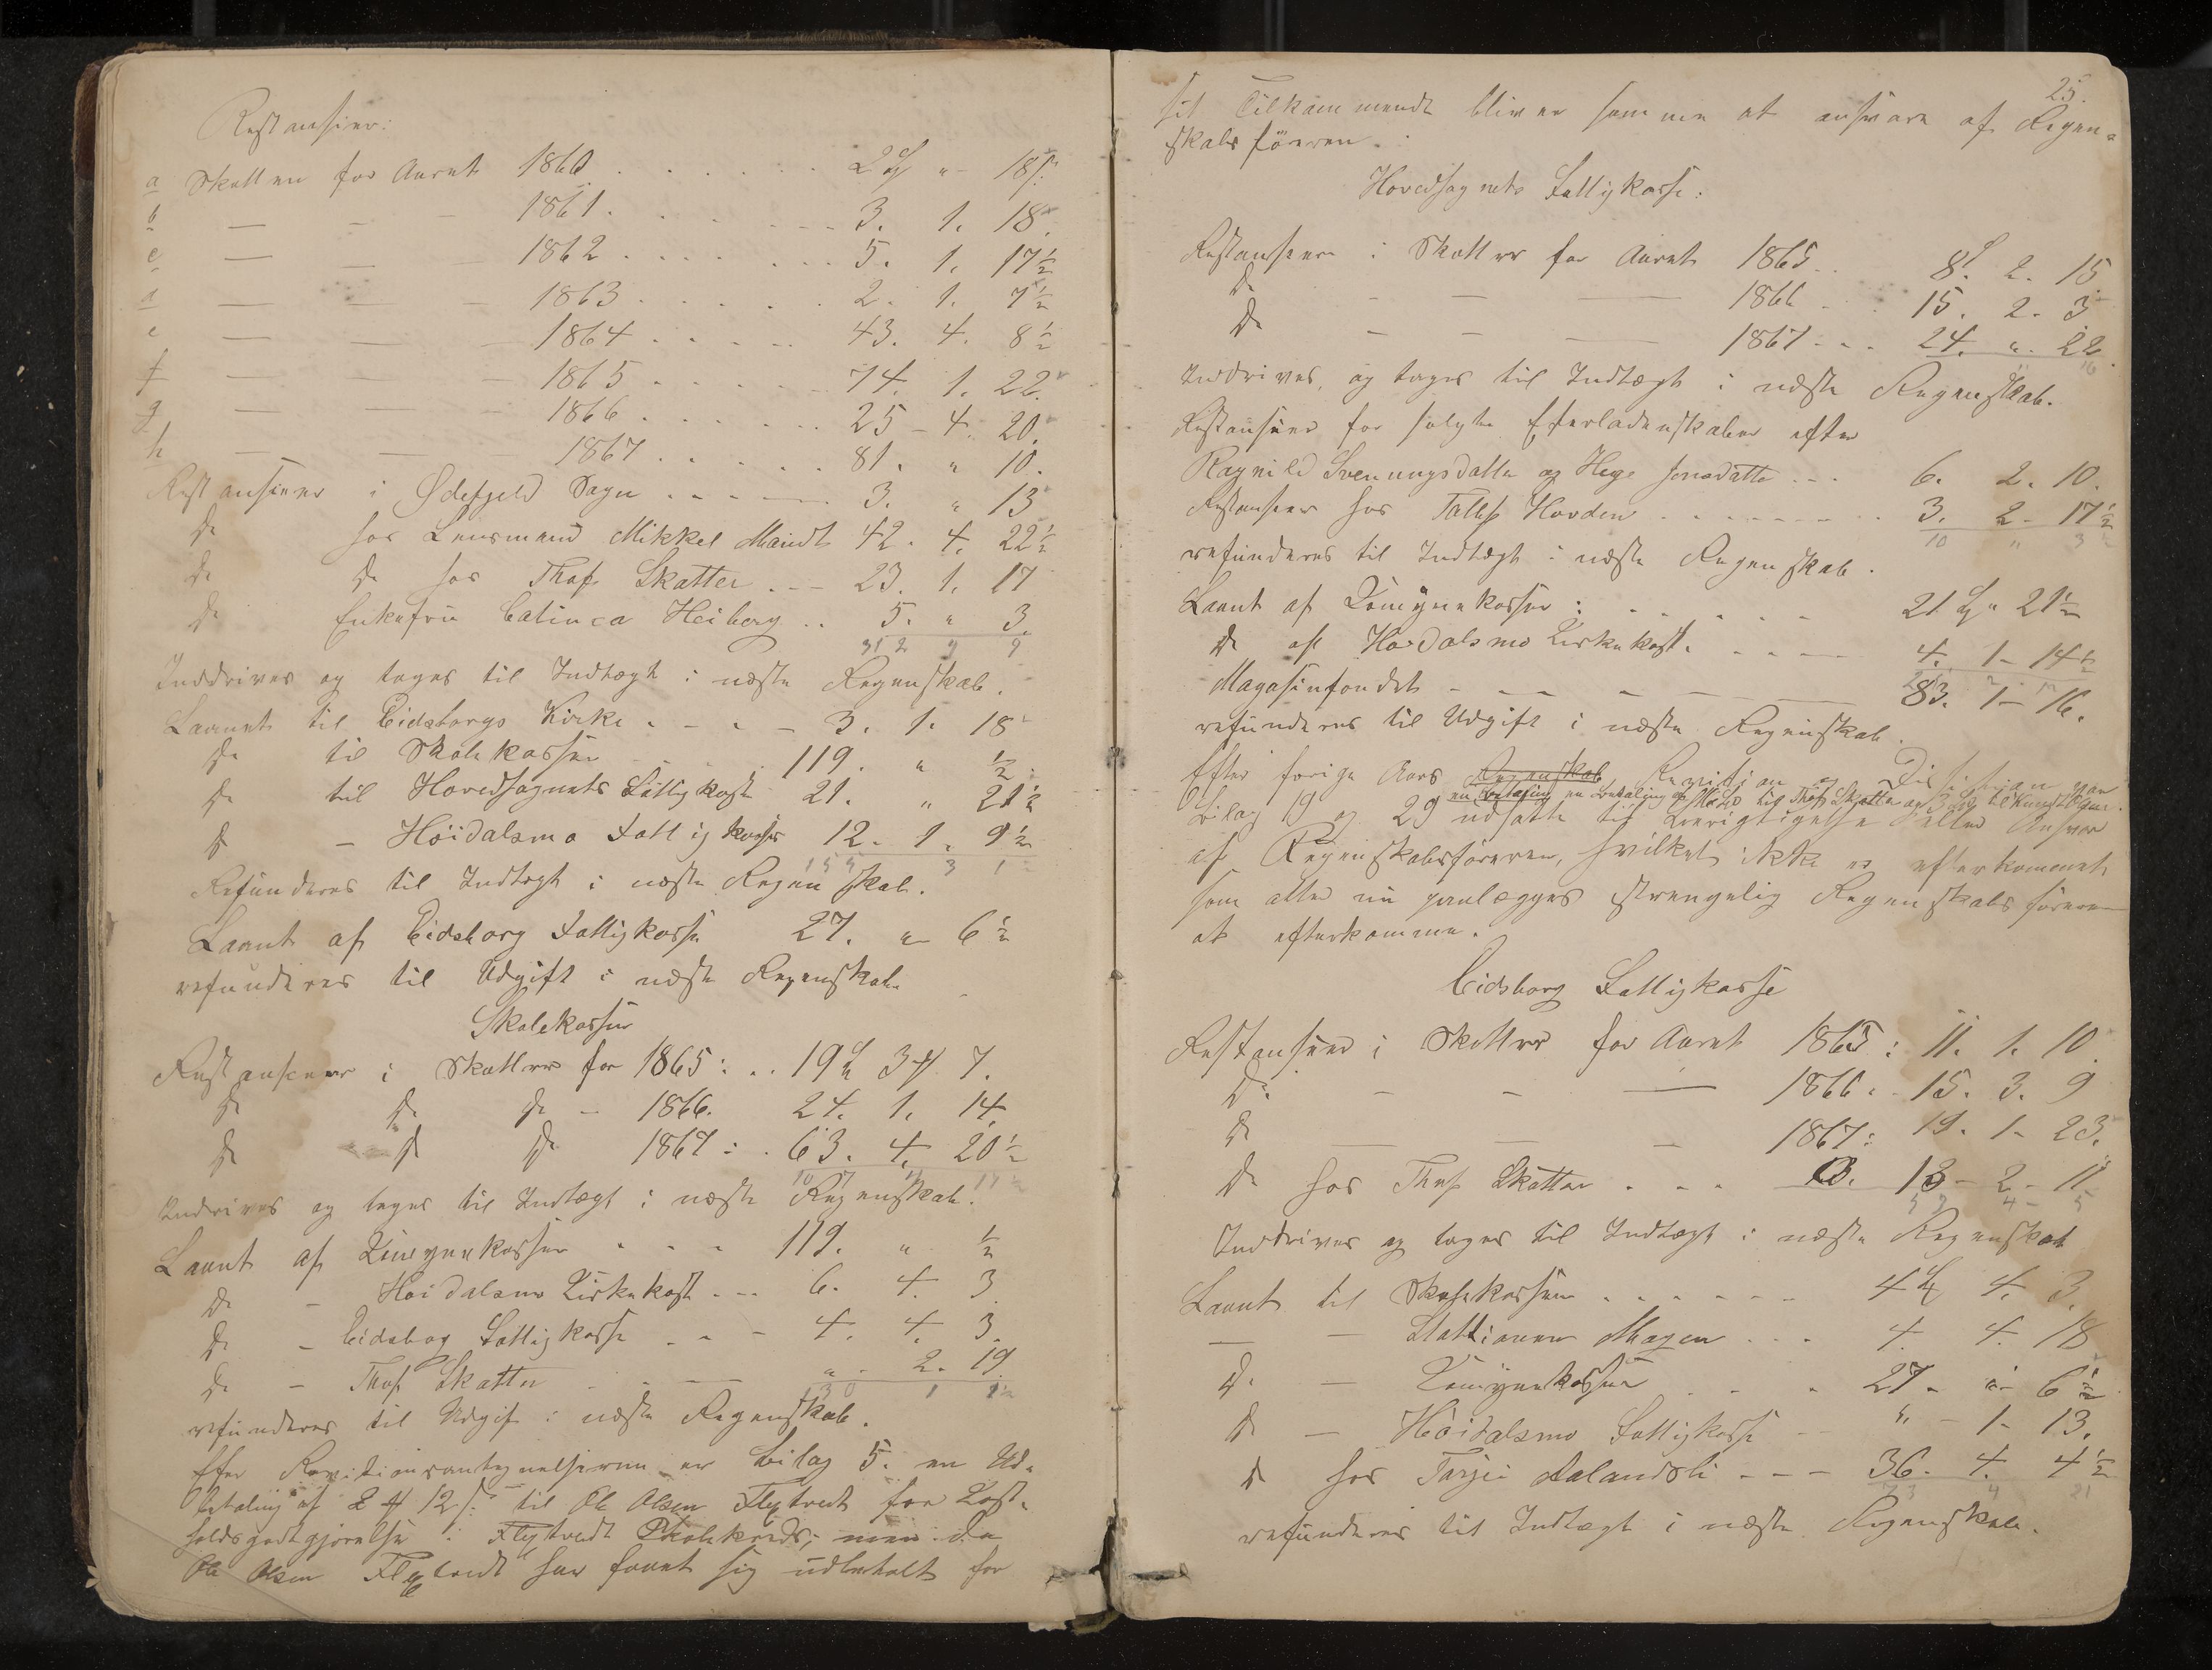 Restansier:
a Skatten for Aaret 1860 . . . . . . 2 " - 18 s:
b — — - 1861 . . . . . 3. 1. 18.
c — — - 1862 . . . . . . 5. 1. 17½
d — — - 1863 . . . . . 2. 1. 7½
e — — - 1864 . . . . . 43. 4. 8½
f — — - 1865 . . . . . 74. 1. 22.
g — — - 1866 . . . . . . 25 - 4. 20.
h — — 1867 . . . . . 81. " 10.
Restansier i Ødefjeld Sogn . . . . 3. " 13
Do hos Lensmand Mikkel Mandt 42. 4. 22½
Do Do hos Thos Skatter . . — 23. 1. 17
Do Enkefru Catinca Heiberg . . 5. " 3.
312 3 9
Inddrives og tages til Indtægt i næste Regenskab.
Laanet til Eidsborgs Kirke . - . - 3. 1. 18
Do til Skolekassen 119. " ½.
Do til Hovedsognets Fattigkasse 21. " 21½
Do - Høidalsmo Fattigkasse 12. 1. 9½
Refunderes til Indtægt i næste Regenskab.
Laant af Eidsborg Fattigkasse 27. " 6½
refunderes til Udgift i næste Regenskab.
Skolekassen
Restanser i Skatter for 1865: . . 19 3 7.
Do Do Do - 1866. 24. 1. 14.
Do Do Do 1867: . 63. 4. 20½
Inddrives og tages til Indtægt i næste Regenskab.
Laant af Komynekassen . . . 119. " ½
Do - Høidalsmo Kirkekasse . - - 6. 4. 3
Do - Eidsborg Fattigkasse . - - 4. 4. 3.
Do - Thos Skatter . — " - 2. 19.
130 1 1½
refunderes til Udgift i næste Regenskab.
Efter Revisionsantegnelserne er Bilag 5. en Ud-
betaling af 2 12 s: til Ole Olsen Flytvedt for Kost-
holdsgodtgjørelse i Flytvedt Skolekreds; men da
Ole Olsen Flytvedt har faaet sig udbetalt for
25.
sit Tilkommende bliver samme at ansvare af Regen-
skabsføreren.
Hovedsognets Fattigkasse:
Restansier i Skatter for Aaret 1865 . . 8. 2. 15
Do - — — 1866 . . 15. 2. 3
Do — - — 1867 . . . 24. " . 22.
Inddrives, og tages til Indtægt i næste Regenskab.
Restansier for solgte Efterladenskaber efter
Ragnild Svenungsdatter og Hege Jonsdatter . . . 6. 2. 10.
Restanser hos Tallef Hovden . . . . . . . 3. 2 - 17½
10 " 3
refunderes til Indtægt i næste Regenskab.
Laant af Komynekassen: . . . . . 21 " 21½
Do af Høidalsmo Kirkekasse. . . . — 4. 1 - 14½
Magasinfondet - — — — 83. 1 - 16.
refunderes til Udgift i næste Regenskab.
Efter forige Aars Regenskab, Revision og Decision var
en Betaling til Thos Skatter og
Bilag 19 og 29 udsatte til Berigtigelse eller Ansvar
af Regenskabsføreren, hvilket ikke er efterkommet
som alter nu paalægges strengelig Regenskabsføreren
at efterkomme.
Eidsborg Fattigkasse
Restansier i Skatter for Aaret 1865: 11. 1. 10
Do - - — 1866. . 15. 3. 9
Do — — — 1867: 19. 1 - 23.
Do hos Thos Skatter . . . 13 - 2 - 11
Inddrives og tages til Indtægt i næste Regenskab
Laant til Skolekassen . . . . . . 4 4. 3.
— — Stattioner Mogen . . . 4. 4. 18
Do — Komynekassen . . . 27. " - 6½
Do — Høidalsmo Fattigkasse " - 1 - 13.
Do hos Tarjei Aalandsli - - - 36. 4. 4½
73 4 21
refunderes til Indtægt i næste Regenskab.